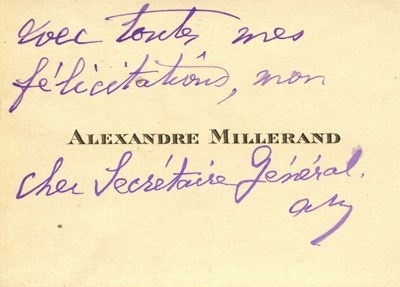 avec toutes mes
félicitations, mon
ALEXANDRE MILLERAND
cher Secrétaire Général.